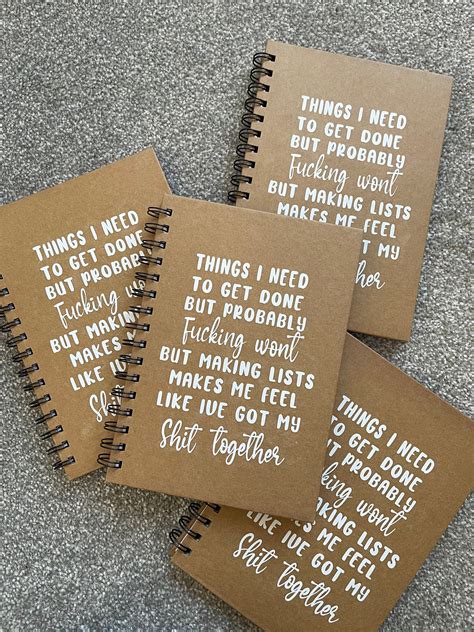 THINGS I NEED
TO GET DONE
BUT PROBABLY
Fucking wont
BUT MAKING LISTS
MAKES ME FEEL
GOT MY
THINGS I NEED
TO GET DONE
BUT PROBABLY
Fucking
BUT MAKING
MAKES
LIKE
Shit
THINGS I NEED
TO GET DONE
BUT PROBABLY
Fucking wont
BUT MAKING LISTS
MAKES ME FEEL
LIKE IVE GOT MY
Shit together
THINGS I NEED
TO GET DONE
BUT PROBABLY
wont
LISTS
MAKES ME FEEL
LIKE IVE GOT MY
Shit together